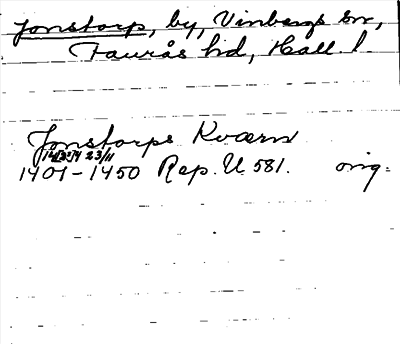 Jonstorp, by, Vinbergs sn,
Faurås hd, Hall. l.
Jonstorps Kværn
23/11
1401-1450 Rep. U 581. orig.